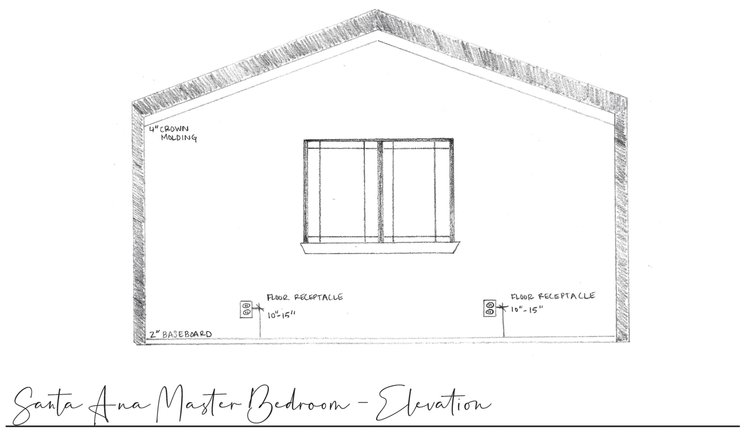 4" CROWN
MOLDING
FLOOR RECEPTACLE
10"-15"
FLOOR RECEPTACLE
10"-15"
2" BASEBOARD
Santa Ana Master Bedroom - Elevation